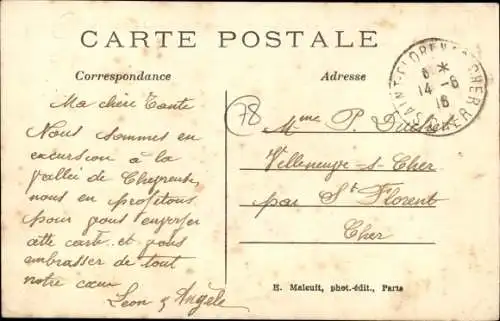 CARTE POSTALE
Correspondance
Adresse
SAINT-FLORENT-S-CHER
6 *
14 -6
16
78
Ma chère Tante
Nous sommes en
excursion à la
vallée de Chevreuse,
nous en profitons
pour vous envoyer
cette carte et vous
embrasser de tout
notre cœur
Léon & Angèle
Mme P.
Villeneuve-s-Cher
par St Florent
Cher
H. Malcuit, phot.-édit., Paris